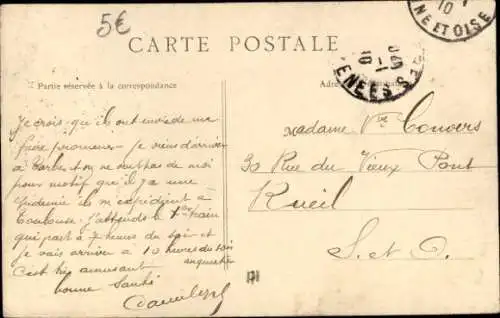 5€
CARTE POSTALE
Partie réservée à la correspondance
Adre
10
NE ET OISE
ENEES
Je crois qu'ils ont envie de me
faire promener je viens d'arriver
à Tarbes et on ne veut pas de moi
pour motif qu'il y a une
épidémie ils m'expédient à
Toulouse. J'attends le train
qui part à 7 heures du soir et
je vais arriver à 10 heures du soir
C'est très amusant
bonne santé
Madame Vve Convers
30 Rue du Vieux Pont
Rueil
S. et O.